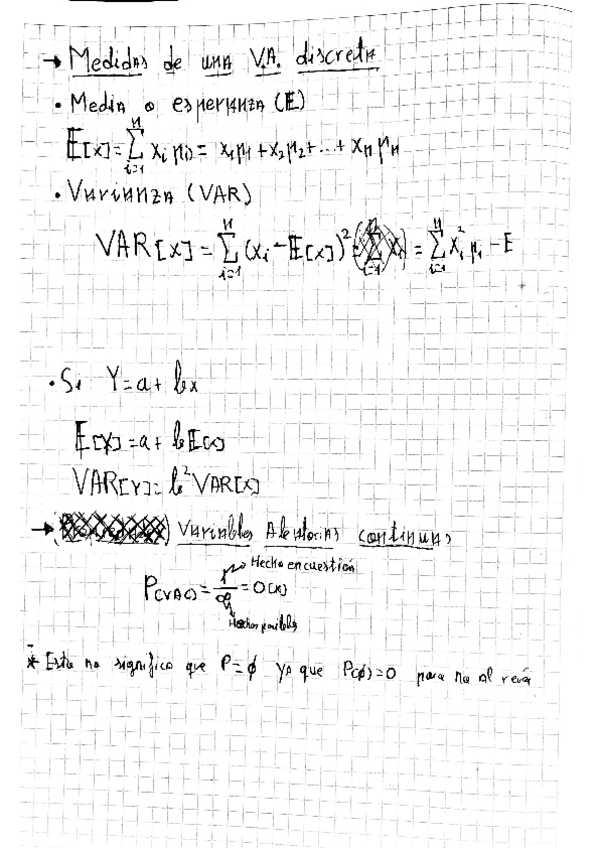 → Medidas de una V.A. discreta
• Media o esperanza (E)
E[x] = ∑ᵢ₌₁ⁿ xᵢ pᵢ = x₁p₁ + x₂p₂ + ... + xₙ pₙ
• Varianza (VAR)
VAR[x] = ∑ᵢ₌₁ⁿ (xᵢ - E[x])² = ∑ᵢ₌₁ⁿ xᵢ² pᵢ - E
• Si Y = a + bx
E[Y] = a + bE[x]
VAR[Y] = b² VAR[x]
→ Variables Aleatorias continuas
Hecho en cuestión
P(VAC) = 1/∞ = 0 (*)
Hechos posibles
* Esto no significa que P = ϕ ya que P(ϕ) = 0 pero no al revé